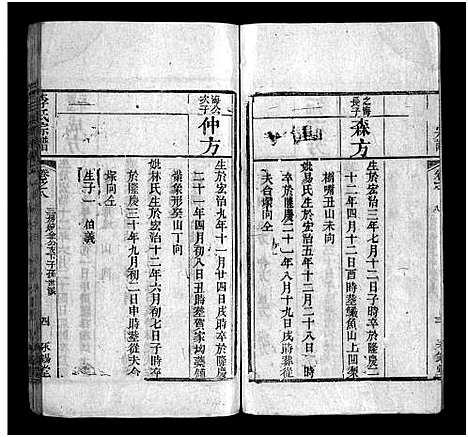 之海
長子
森方
生於宏治三年七月十二日子時卒於隆慶二
十二年四月十二日酉時塟鱅魚山上凹梁
梢嘴丑山未向
妣易氏生於宏治五年十三月二十八日
卒於隆慶二十一年八月十九日戌時塟
夫合塚向仝
海公
次子
仲方
生於宏治九年十一月廿四日戌時卒於隆慶
二十一年四月初八日丑時塟賀家坳
梁象形癸山丁向
妣林氏生於宏治十二年六月初七日子時卒
於隆慶三十年九月初二日申時塟從夫合
塚向仝
生子一 伯義
李氏宗譜
卷之八
四